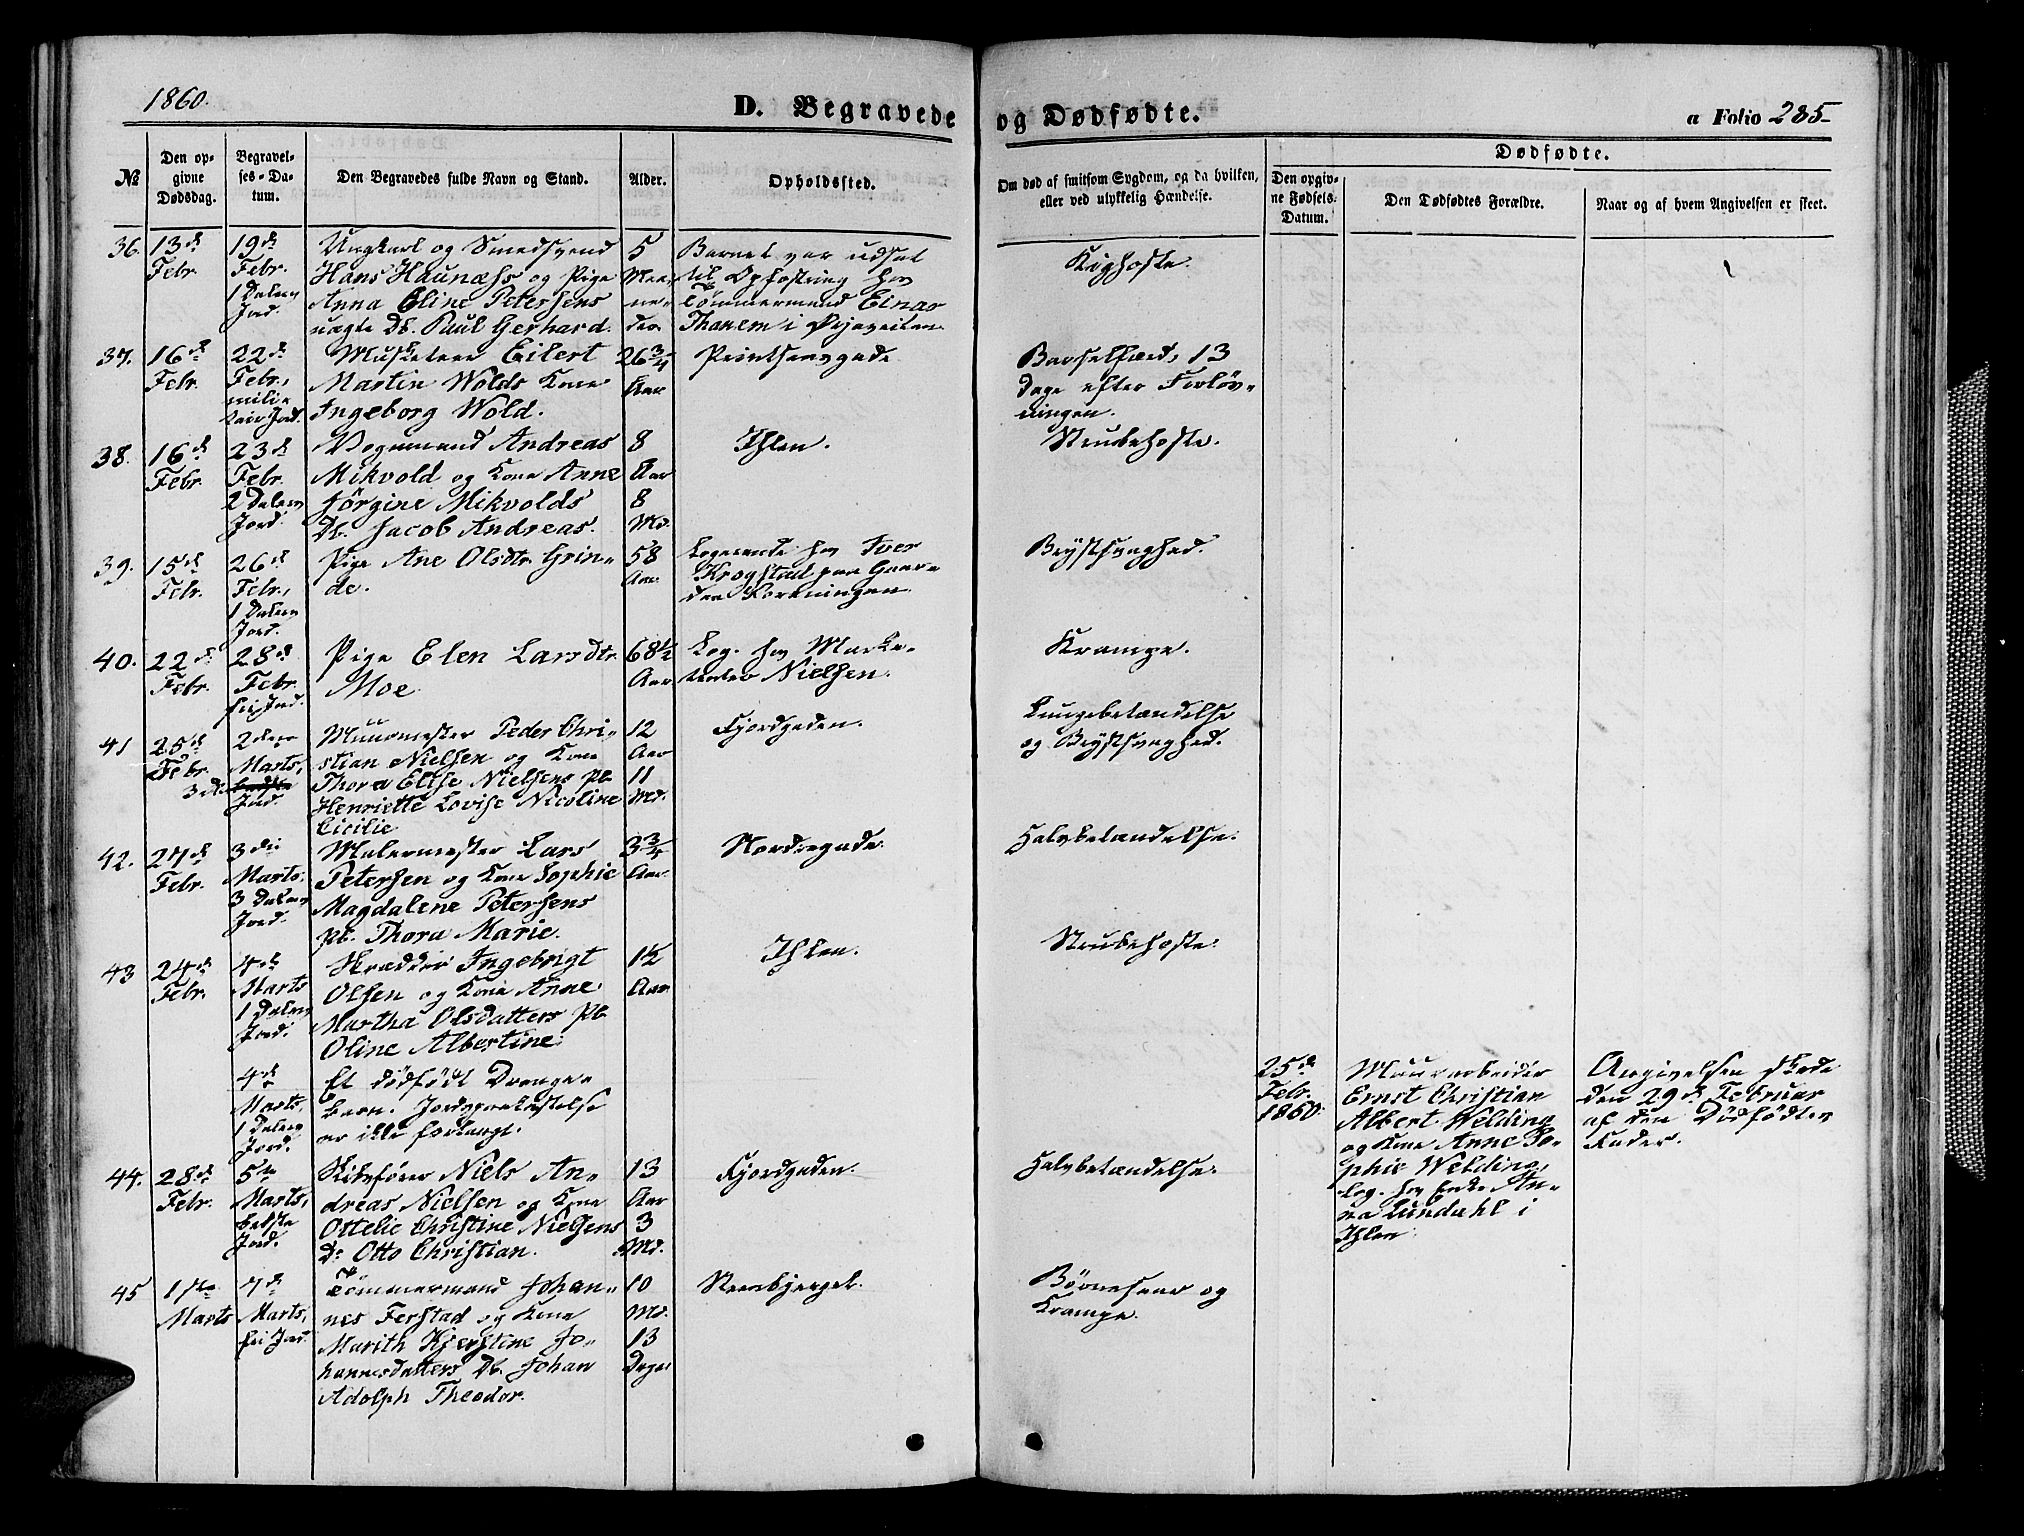 1860.
D. Begravede og Dødfødte.
a Folio 285
№
Den opgivne Dødsdag.
Begravelses-Datum.
Den Begravedes fulde Navn og Stand.
Alder.
Opholdssted.
Om død af smitsom Sygdom, og da hvilken,
eller ved ulykkelig Hændelse.
Dødfødte.
Den opgivne Fødsels-Datum.
Den Dødfødtes Forældre.
Naar og af hvem Angivelsen er skeet.
36.
13de
Febr.
19de
Febr.
1 Dalers
Jord.
Ungkarl og Smedsvend
Hans Haunæss og Pige
Anna Eline Petersens
uægte Db. Paul Gerhard.
5
Maaneder
Barnet var udsat
til Opfostring hos
Tømmermand Einar
Thanem i Øyaveiten
Kighoste.
37.
16de
Febr.
22de
Febr.,
militair Jord.
Musketeer Eilert
Martin Wolds Kone
Ingeborg Wold.
26 3/4
Aar
Printsensgade
Barselfærd, 13
Dage efter Forløsningen.
38.
16de
Febr.
23de
Febr.
2 Dalers
Jord.
Vognmand Andreas
Mikvold og Kone Anne
Jørgine Mikvolds
Db. Jacob Andreas.
8
Aar
8
Md.
Ihlen.
Strubehoste.
39.
15de
Febr.
26de
Febr.,
1 Dalers
Jord.
Pige Ane Olsdtr. Grin-
de.
58
Aar
Logerende hos Iver
Krogstad paa Gaarden
Brystsvaghed.
40.
22de
Febr.
28de
Febr.
fri Jord.
Pige Elen Larsdtr.
Moe
68 1/2
Aar
Log. hos Marke-
tenter Nielsen.
Krampe.
41
25de
Febr.
2den
Marts,
3 D.
Jord.
Muurmester Peder Chri-
stian Nielsen og Kone
Thora Elise Nielsens Pb.
Henriette Lovise Nicoline
Cicilie
12
Aar
11
Md.
Fjordgaden.
Lungebetændelse
og Brystsvaghed.
42.
27de
Febr.
3die
Marts.
3 Dalers
Jord.
Malermester Lars
Petersen og Kone Sophie
Magdalene Petersens
Pb. Thora Marie.
3 3/4
Aar.
Nordregade.
Halsbetændelse.
43
24de
Febr.
4de
Marts
1 Dalers
Jord.
Skrædder Ingebrigt
Olsen og Kone Anne
Martha Olsdatters Pb.
Oline Albertine.
1 1/2
Aar.
Ihlen.
Strubehoste.
4de
Marts,
1 Dalers
Jord.
Et dødfødt Drenge-
barn. Jordspaakastelse
er ikke forlangt.
25de
Febr.
1860.
Muurarbeider
Ernst Christian
Albert Welding
og Kone Anne So-
phie Welding,
log. hos Enke An-
na Lundahl i
Ihlen.
Angivelsen skede
den 29de Februar
af den Dødfødtes
Fader.
44.
28de
Febr.
5te
Marts,
bedste
Jord.
Niels An-
dreas Nielsen og Kone
Ottelie Christine Nielsens
D. Otto Christian.
13
Aar
3
Md.
Fjordgaden.
Halsbetændelse.
45
1ste
Marts
7de
Marts,
fri Jord.
Tømmermand Johan-
nes Ferstad og Kone
Marith Kjerstine Jo-
hannesdatters Db. Johan
Adolph Theodor.
10
Md.
13
Dage
Steenbjerget.
Krampe.